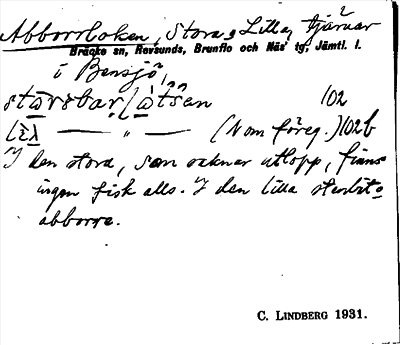 Abborrloken, Stora o Lilla, tjärnar
Bräcke sn, Revsunds, Brunflo och Näs' tg, Jämtl. l.
i Bensjö,
102
— " — (Nom föreg.) 102b
I den stora, som saknar utlopp, finns
ingen fisk alls. I den lilla
abborre.
C. LINDBERG 1931.